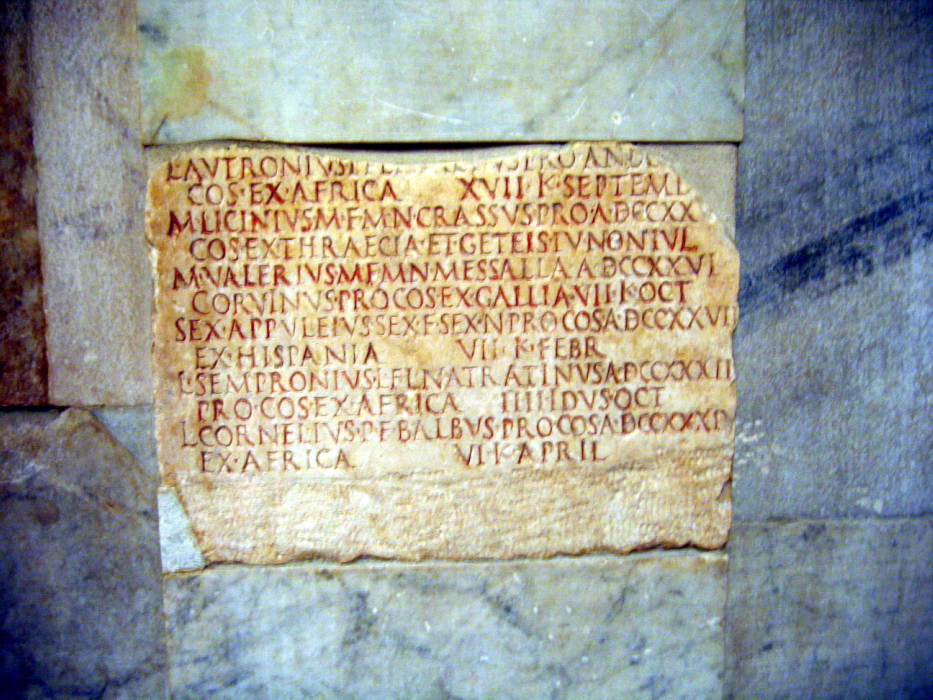 L·AVTRONIVS PRO AN
COS·EX·AFRICA XVII·K·SEPTEM
M·LICINIVS·M·F·M·N·CRASSVS·PRO·A·DCCXX
COS·EX·THRAECIA·ET·GETEIS·IV·NON·IVL
M·VALERIVS·M·F·M·N·MESSALLA A·DCCXXVI
CORVINVS·PRO·COS·EX·GALLIA·VII·K·OCT
SEX·APPVLEIVS·SEX·F·SEX·N·PRO·COS·A·DCCXXVII
EX·HISPANIA VII·K·FEBR
L·SEMPRONIVS·L·F·L·N·ATRATINVS·A·DCCXXXII
PRO·COS·EX·AFRICA IIII·IDVS·OCT
L·CORNELIVS·P·F·BALBVS·PRO·COS·A·DCCXXXI
EX·AFRICA VI·K·APRIL